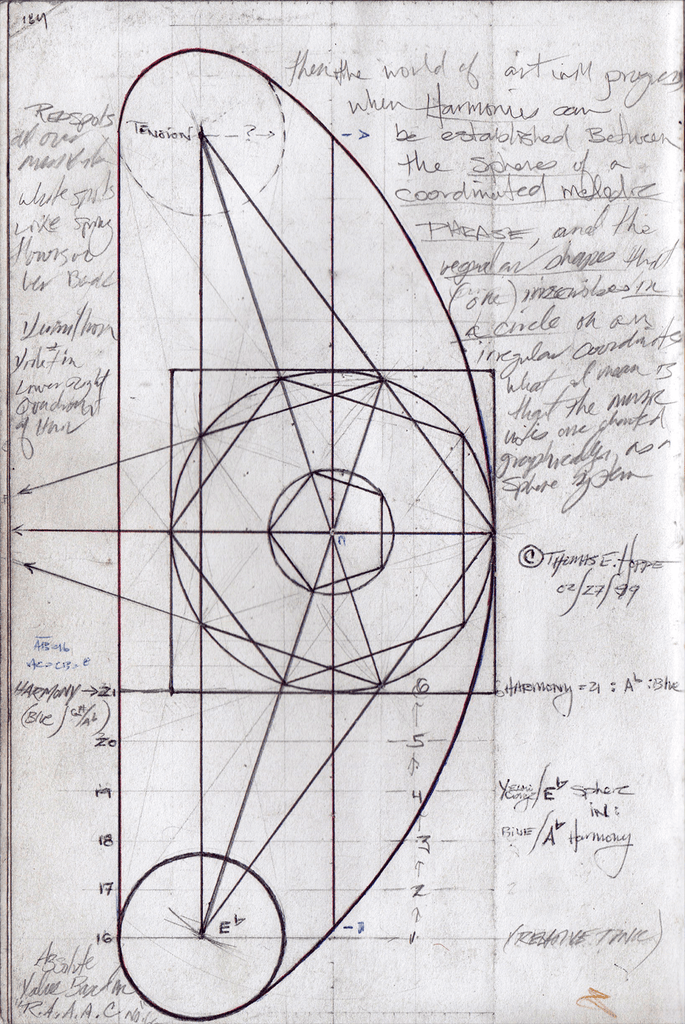 184
then the world of art will progress
when Harmonies can
be established Between
the Spheres of a
coordinated melodic
PHRASE, and the
regular shapes that
(one) inscribes in
a circle on an
irregular coordinate
what I mean is
that the music
graphically, as a
Sphere System
© THOMAS E. HOPPE
02/27/99
RED SPOTS
all over
white spots
like Spring
flowers on
her Back
Write in
Lower Right
Quadrant
of
TENSION
- - ? - ->
->
n
AB=16
AC=CB=8
HARMONY → 21
(Blue / G#/Ab)
20
19
18
17
16
6
5
4
3
2
1
HARMONY = 21 : Ab : Blue
/ Eb Sphere
IN:
BLUE / Ab Harmony
(RELATIVE TONIC)
Eb
Absolute
Value Based on
"R.A.A.C.